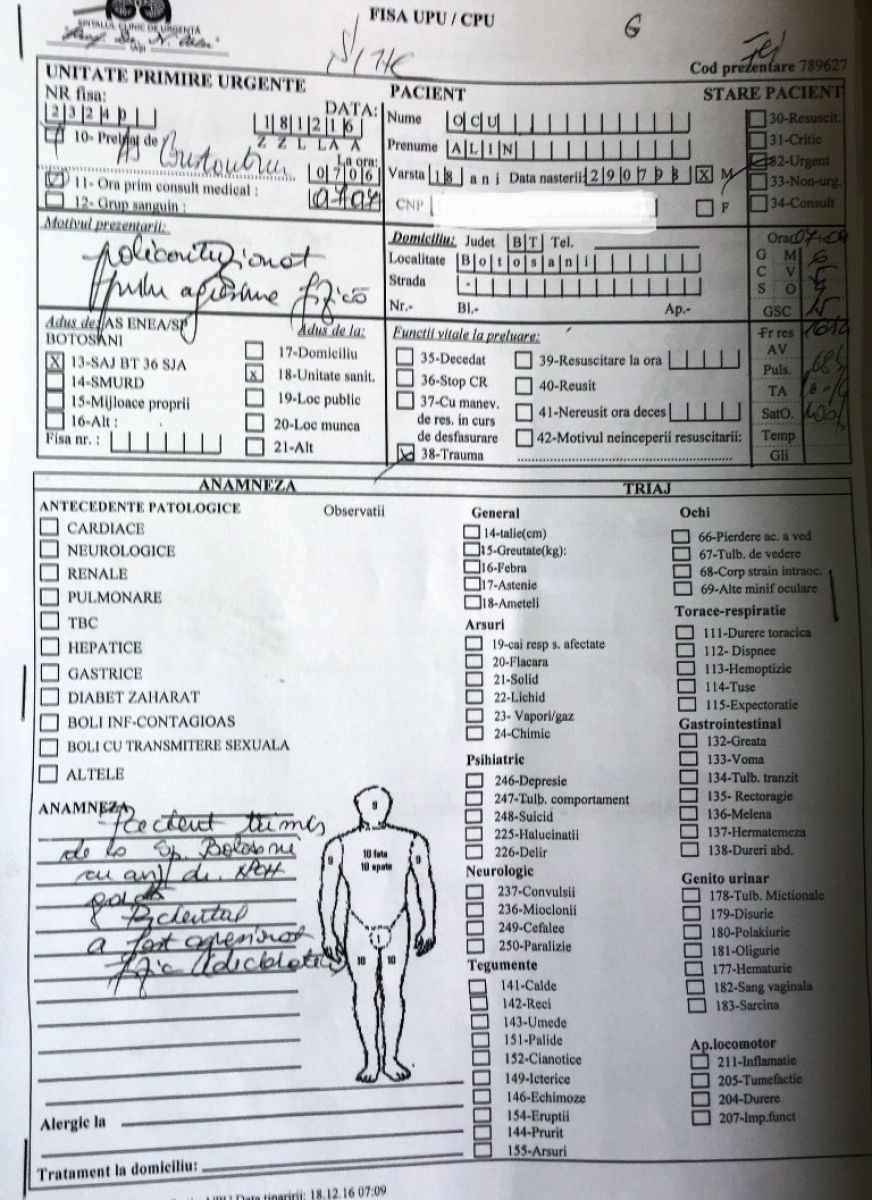 SPITALUL CLINIC DE URGENTA
Prof. Dr. N.
IAȘI
FISA UPU / CPU
G
Cod prezentare 789627
UNITATE PRIMIRE URGENTE
NR fisa:
23240
DATA:
181216
Z Z L L A A
10- Preluat de
As
La ora:
0706
11- Ora prim consult medical :
12- Grup sanguin :
PACIENT
Nume OCU
Prenume ALIN
Varsta 18 ani Data nasterii: 290798 X M
CNP
F
STARE PACIENT
30-Resuscit.
31-Critic
32-Urgent
33-Non-urg.
34-Consult
Motivul prezentarii:
policontuzionat
agresiune fizică
Domiciliu: Judet BT Tel.
Localitate Botosani
Strada -
Nr.- Bl.- Ap.-
Ora
G M 6
C V 5
S O 4
GSC 15
Adus de: AS ENEA/SP
BOTOSANI
X 13-SAJ BT 36 SJA
14-SMURD
15-Mijloace proprii
16-Alt :
Fisa nr. :
Adus de la:
17-Domiciliu
x 18-Unitate sanit.
19-Loc public
20-Loc munca
21-Alt
Functii vitale la preluare:
35-Decedat
36-Stop CR
37-Cu manev.
de res. in curs
de desfasurare
38-Trauma
39-Resuscitare la ora
40-Reusit
41-Nereusit ora deces
42-Motivul neinceperii resuscitarii:
Fr res
AV
Puls.
TA
SatO.
Temp
Gli
ANAMNEZA
TRIAJ
ANTECEDENTE PATOLOGICE Observatii
CARDIACE
NEUROLOGICE
RENALE
PULMONARE
TBC
HEPATICE
GASTRICE
DIABET ZAHARAT
BOLI INF-CONTAGIOAS
BOLI CU TRANSMITERE SEXUALA
ALTELE
ANAMNEZA
Pacient trimis
de la Sp. Botosani
cu
Pacientul
a fost agresionat
fizic
9
9
10 fata
10 spate
9
1
10 10
Alergic la
Tratament la domiciliu:
General
14-talie(cm)
15-Greutate(kg):
16-Febra
17-Astenie
18-Ameteli
Arsuri
19-cai resp s. afectate
20-Flacara
21-Solid
22-Lichid
23- Vapori/gaz
24-Chimic
Psihiatric
246-Depresie
247-Tulb. comportament
248-Suicid
225-Halucinatii
226-Delir
Neurologic
237-Convulsii
236-Mioclonii
249-Cefalee
250-Paralizie
Tegumente
141-Calde
142-Reci
143-Umede
151-Palide
152-Cianotice
149-Icterice
146-Echimoze
154-Eruptii
144-Prurit
155-Arsuri
Ochi
66-Pierdere ac. a ved
67-Tulb. de vedere
68-Corp strain intraoc.
69-Alte minif oculare
Torace-respiratie
111-Durere toracica
112- Dispnee
113-Hemoptizie
114-Tuse
115-Expectoratie
Gastrointestinal
132-Greata
133-Voma
134-Tulb. tranzit
135- Rectoragie
136-Melena
137-Hermatemeza
138-Dureri abd.
Genito urinar
178-Tulb. Mictionale
179-Disurie
180-Polakiurie
181-Oligurie
177-Hematurie
182-Sang vaginala
183-Sarcina
Ap.locomotor
211-Inflamatie
205-Tumefactie
204-Durere
207-Imp.funct
Data tiparirii: 18.12.16 07:09